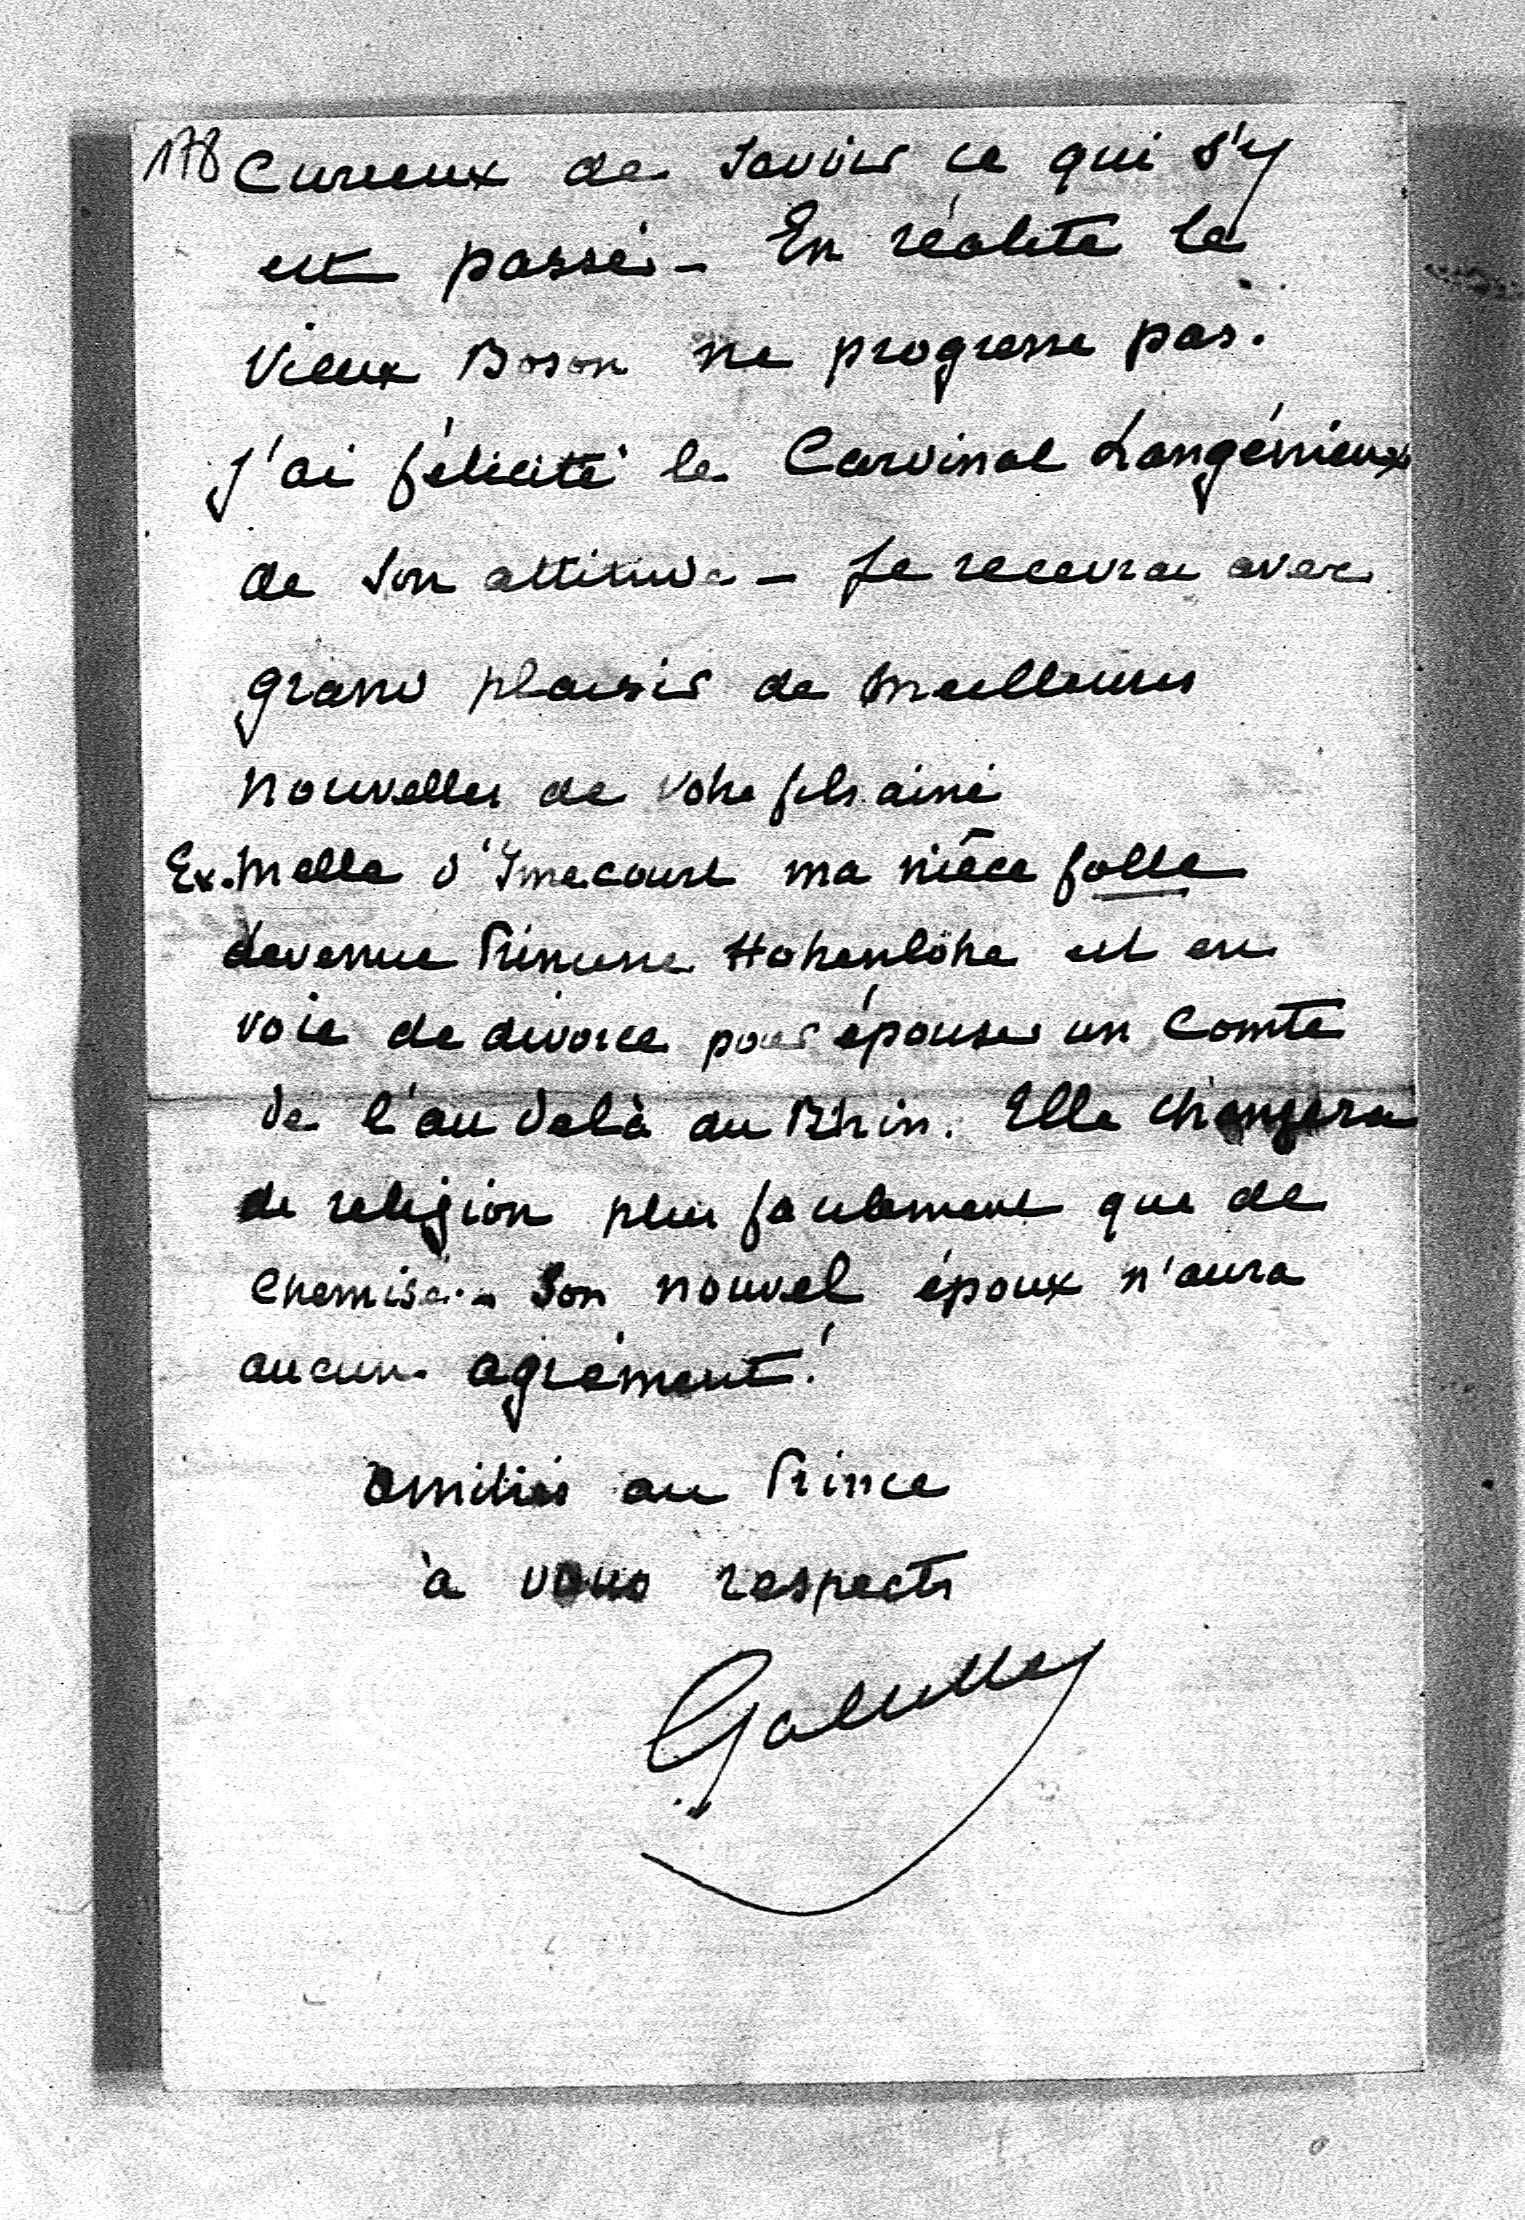 178 Curieux de savoir ce qui s'y
est passé - En réalité le
vieux Boson ne progresse pas.
J'ai félicité le Cardinal Langénieux
de son attitude - Je recevrai avec
grand plaisir de meilleures
nouvelles de votre fils ainé
Ex. Melle d'Imecourt ma nièce folle
devenue Princesse Hohenlöhe est en
voie de divorce pour épouser un Comte
de l'au delà du Rhin. Elle changera
de religion plus facilement que de
chemise - Son nouvel époux n'aura
aucun agrément !
amitiés au Prince
à vous respects
Galliffet